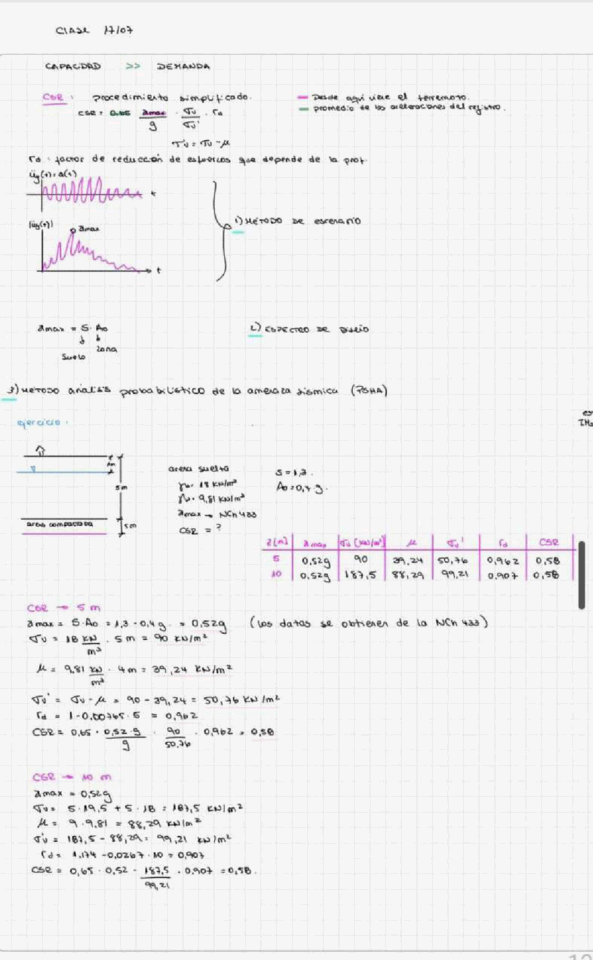 CLASE 17/07
CAPACIDAD >> DEMANDA
CSR: procedimiento simplificado.
— Desde aquí viene el terremoto.
CSR = 0.65 amax/g · σv/σv' · rd
— promedio de las aceleraciones del registro.
σ'v = σv - μ
rd: factor de reducción de esfuerzos que depende de la prof.
üg(t) = a(t)
t
|üg(t)|
amax
t
1) MÉTODO DE ESCENARIO
amax = S · Ao
Suelo
Zona
2) ESPECTRO DE DISEÑO
3) MÉTODO análisis probabilístico de la amenaza sísmica (PSHA)
ejercicio:
1m
5m
arena compactada
5m
arena suelta
γ = 18 kN/m³
γw = 9,81 kN/m³
amax → NCh 433
CSR = ?
S = 1,3
Ao = 0,4 g.
z[m] amax σv [kN/m²] μ σv' rd CSR
5 0,52g 90 39,24 50,76 0,962 0,58
10 0,52g 187,5 88,29 99,21 0.907 0,58
CSR → 5 m
amax = S·Ao = 1,3 · 0,4 g. = 0,52g (los datos se obtienen de la NCh 433)
σv = 18 kN/m³ · 5 m = 90 kN/m²
μ = 9,81 kN/m³ · 4 m = 39,24 kN/m²
σv' = σv - μ = 90 - 39,24 = 50,76 kN/m²
rd = 1 - 0,00765 · 5 = 0,962
CSR = 0,65 · 0,52·g/g · 90/50,76 · 0,962 = 0,58
CSR → 10 m
amax = 0,52g
σv = 5 · 19,5 + 5 · 18 = 187,5 kN/m²
μ = 9 · 9.81 = 88,29 kN/m²
σ'v = 187,5 - 88,29 = 99,21 kN/m²
rd = 1,174 - 0,0267 · 10 = 0,907
CSR = 0,65 · 0,52 · 187,5/99,21 · 0,907 = 0,58.